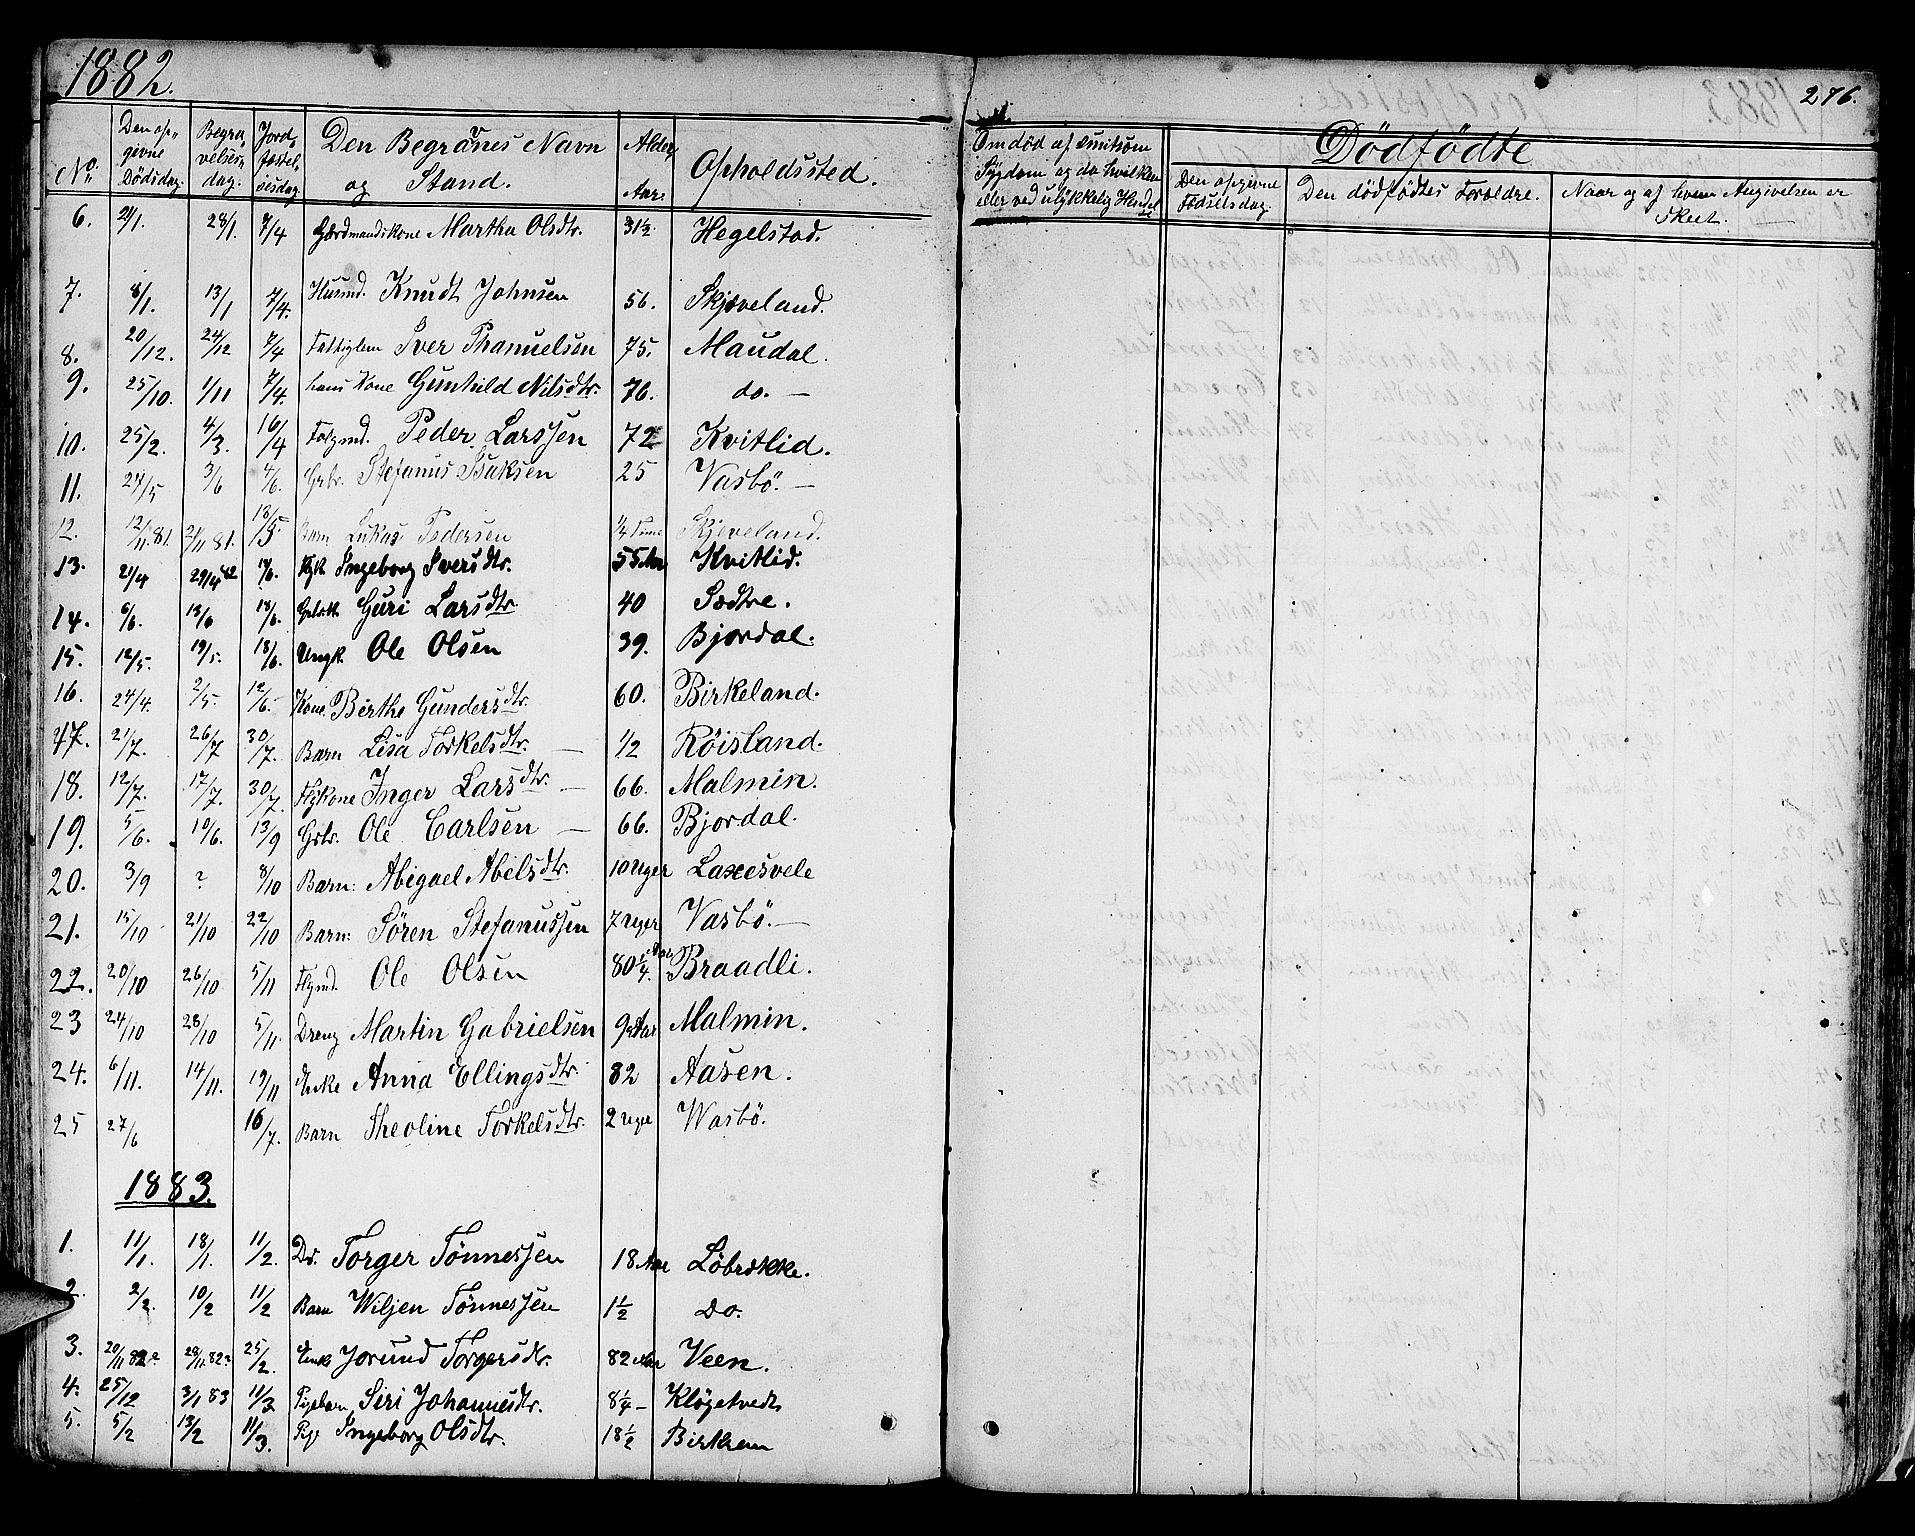 1882.
276.
No. Den op- givne Dödsdag. Begra- velses- dag. Jord- fæstel- sesdag. Den Begravnes Navn og Stand. Alder Aar. Opholdssted.
Om död af smitsom Sygdom og da hvilken eller ved ulykkelig Hendel
Dödfödte
Den opgivne Födselsdag. Den dödfödtes Forældre. Naar og af hvem Angivelsen er skeet.
6. 21/1. 28/1. 7/4 Gaardmandskone Martha Olsdtr. 31½ Hegelstad.
7. 8/1. 13/1 7/4. Husmd. Knudt Johnsen 56. Skjæveland.
8. 20/12. 24/12 7/4 Fattiglem Iver Thanuelsen 75. Maudal.
9. 25/10. 1/11 7/4. hans Kone Gunhild Nilsdtr. 76. do. —
10. 25/2. 4/3. 16/4 Folgmd. Peder Larssen 72 Kvitlid.
11. 24/5 3/6 4/6. Grbr. Stefanus Isaksen 25 Vasbö. —
12. 12/11.81. 21/11 81. 18/5. Barn Lukas Pedersen ½ Time Skjeveland.
13. 21/4 29/4 82 1/6. Ingeborg Iversdtr. 55 Aar Kvitlid.
14. 6/6. 13/6 18/6. Guri Larsdtr. 40 Sædtre.
15. 12/5. 19/5. 18/6. Ungk. Ole Olsen 39. Bjordal.
16. 24/4. 2/5. 12/6. Kone Birthe Gundersdtr. 60. Birkeland.
17. 21/7. 26/7 30/7. Barn Lisa Torkelsdtr. — 1/2 Röisland.
18. 12/7. 17/7. 30/7. Flgkone Inger Larsdtr. — 66. Malmin.
19. 5/6. 10/6. 13/9 Grbr. Ole Carlsen — 66. Bjordal.
20. 3/9 ? 8/10 Barn: Abigael Abelsdtr. 10 Uger Laxesvele
21. 15/10 21/10 22/10 Barn: Sören Stefanussen 7 Uger Vasbö. —
22. 20/10 26/10 5/11 Flgmd. Ole Olsen 80¼ Aar Braadli.
23 24/10 28/10 5/11. Dreng Martin Gabrielsen 9 Aar Malmin.
24. 6/11. 14/11. 19/11 Enke Anna Ellingsdtr. 82 Aasen.
25 27/6 16/7. Barn Theoline Torkelsdtr. 2 Uger Wasbö.
1883.
1. 11/1. 18/1. 11/2. Dr. Torger Tönnessen 18 Aar Löbrække.
2. 2/2. 10/2 11/2 Barn Wiljen Tönnessen 1½ Do.
3. 20/11 82? 28/11. 82? 25/2. Enke Jorund Torgersdtr. 82 Aar Veen.
4. 25/12 3/1 83 11/3 Pigebarn Siri Johannesdtr. 8¼ — Klögetvedt
5. 5/2 13/2 11/3. Pige Ingeborg Olsdtr. 18½ Birkrem